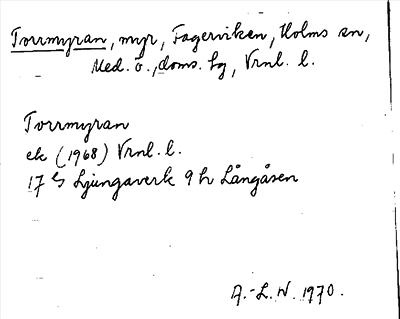 Torrmyran, myr, Fagerviken, Holms sn,
Med. ö., doms. bg, Vrnl. l.
Torrmyran
ek (1968) Vrnl. l.
17 G Ljungaverk 9 h Långåsen
A.-L. W. 1970.